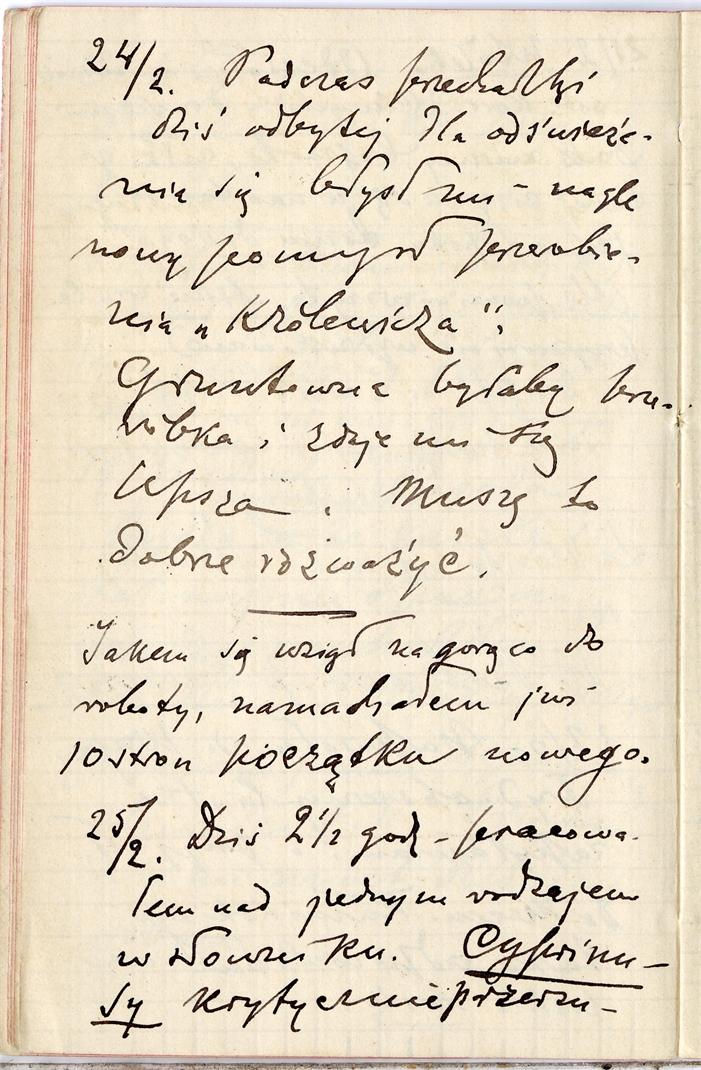 24/2. Podczas przechadzki
dziś odbytej dla odśwież-
nia się błysł mi - nagle
nowy pomysł przerobie-
nia „Królewicza":
Gruntowna byłaby prze-
róbka i zdaje mi się
lepsza. Muszę to
dobrze rozważyć.
Jakem się wziął na gorąco do
roboty, namachałem już
10 stron początku nowego.
25/2. Dziś 2 1/2 godz - pracowa-
łem nad jednym rodzajem
w słowniku. Cyprinu-
sy krytycznie przerzu-